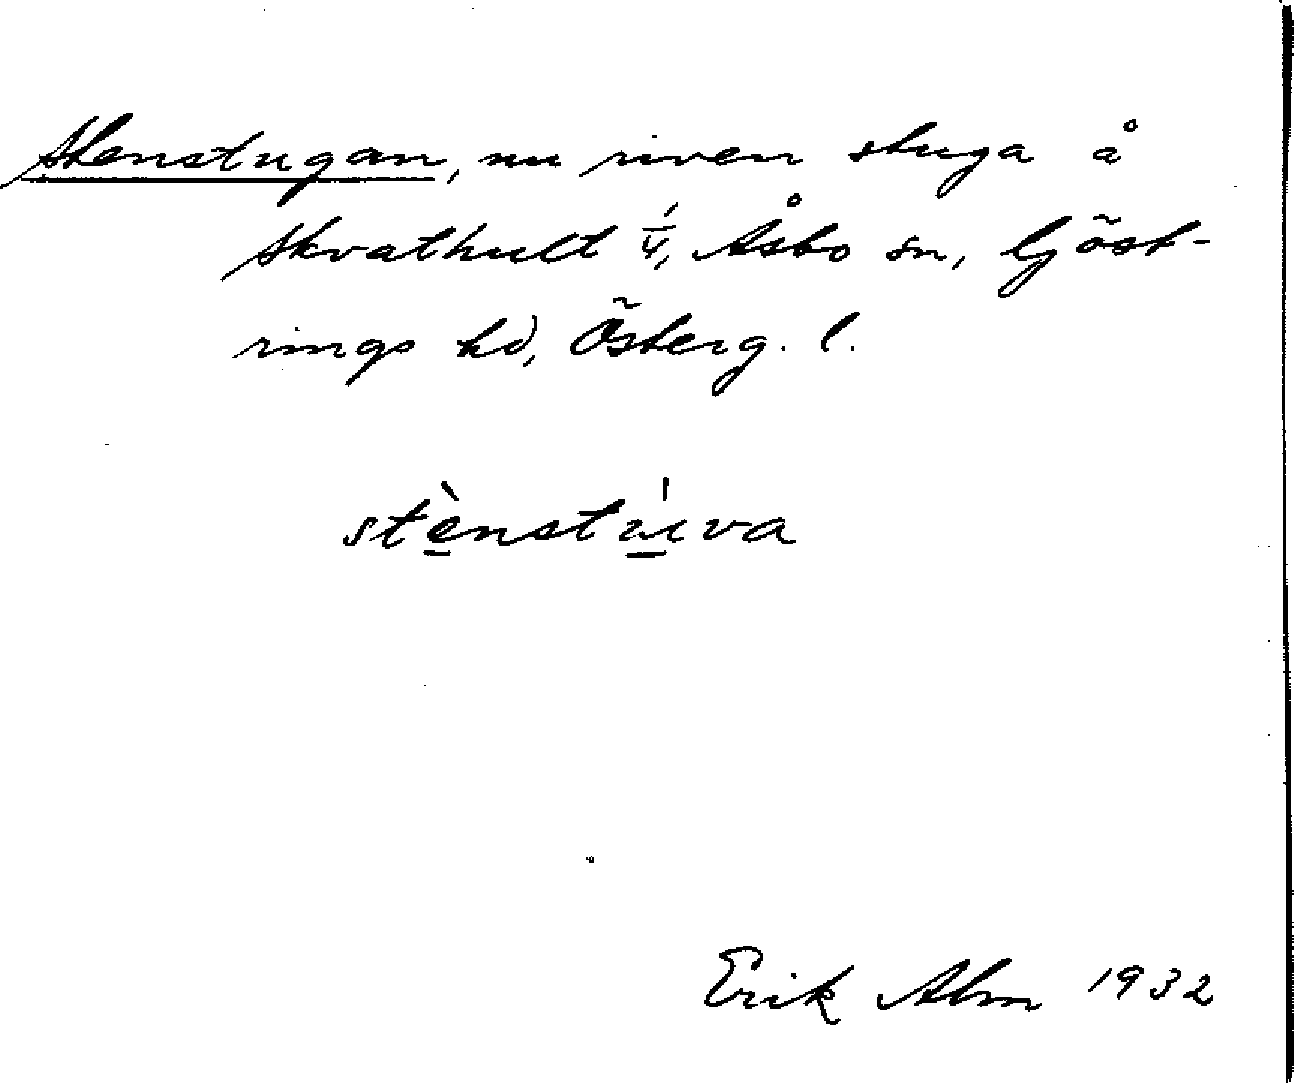 Stenstugan, nu riven stuga å
Skvathult 1/4, Åsbo sn, Göst-
rings hd, Österg. l.
stènstu̱va
Erik Alm 1932